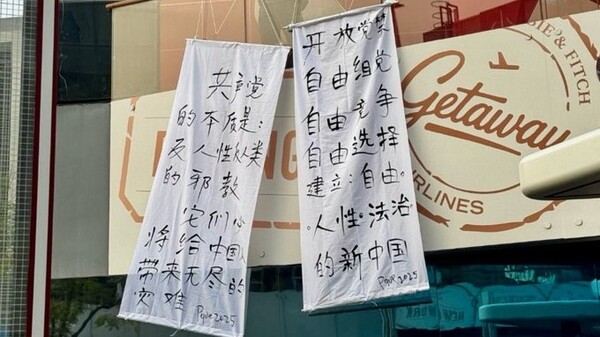 共产党
的本质是：
反人性反人类
的邪教
它们必
将给中国人
带来无尽的
灾难
2025
开放党禁
自由组党
自由竞争
自由选择
建立：自由。
。人性。法治
的新中国
2025
& FITCH
Getaway
RLINES